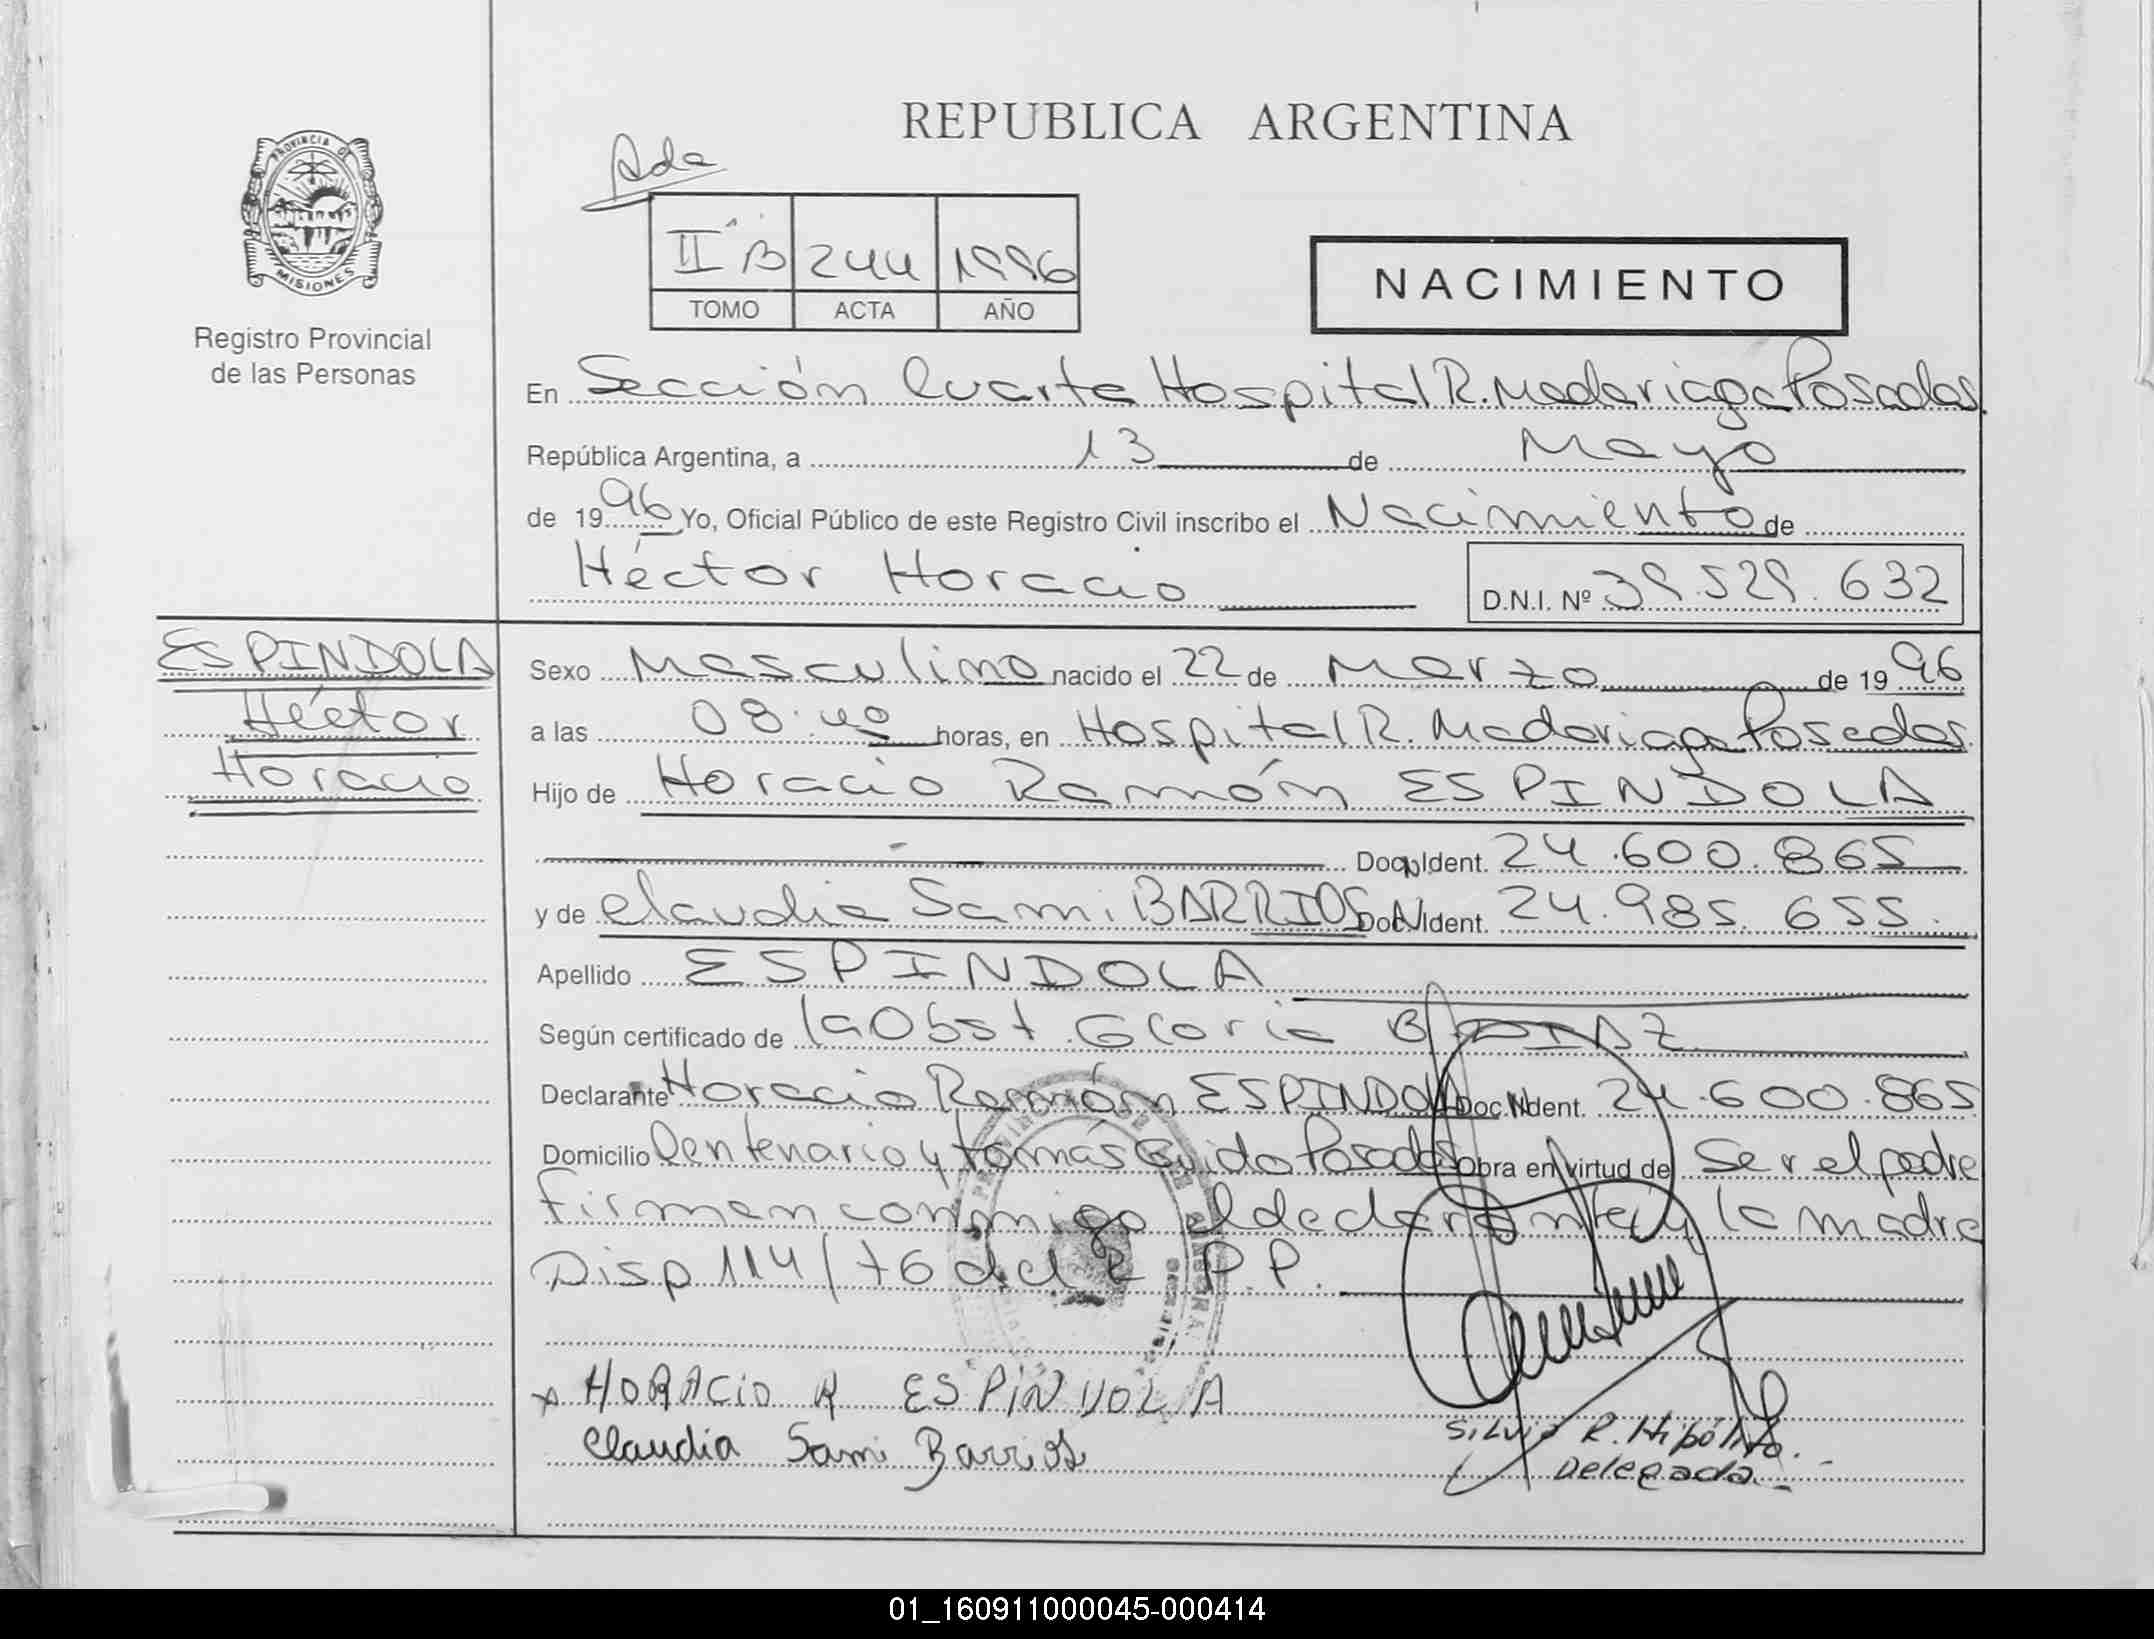 REPUBLICA ARGENTINA
PROVINCIA DE
MISIONES
Registro Provincial
de las Personas
Ada
II B 244 1996
TOMO ACTA AÑO
NACIMIENTO
En Sección Cuarta Hospital R. Madariaga Posadas.
República Argentina, a 13 de Mayo
de 1996 Yo, Oficial Público de este Registro Civil inscribo el Nacimiento de
Héctor Horacio D.N.I. Nº 39.529.632
ESPINDOLA
Héctor
Horacio
Sexo Masculino nacido el 22 de Marzo de 1996
a las 08:40 horas, en Hospital R. Madariaga Posadas.
Hijo de Horacio Ramón ESPINDOLA
Doc.N.Ident. 24.600.865
y de Claudia Sami BARRIOS Doc.N.Ident. 24.985.655.
Apellido ESPINDOLA
Según certificado de la Obst. Gloria B DIAZ
Declarante Horacio Ramón ESPINDOLA Doc.N.Ident. 24.600.865
Domicilio Centenario y Tomás Guido Posadas Obra en virtud de Ser el padre
Firman conmigo el declarante y la madre
Disp 114/76 del R P.P.
x HORACIO R ESPINDOLA
Claudia Sami Barrios
Silvia R. Hipólito.
Delegada.
01_160911000045-000414